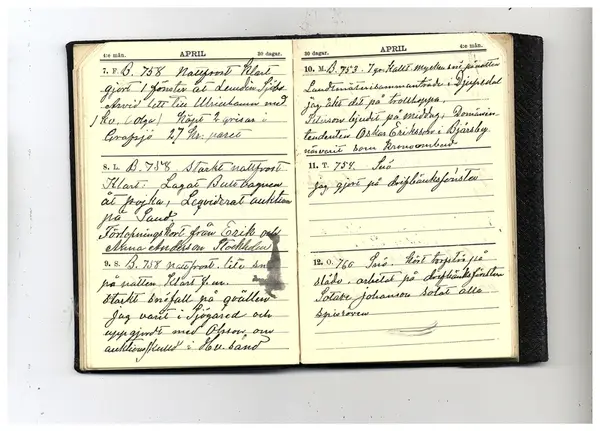 4:e mån. APRIL 30 dagar.
7. F. B. 758 Nattfrost Klart
gjort 1 fönster åt
Arvid lett till Ulricehamn med
1 kv. 1 olga) Köpt 2 grisar i
27 Kr. paret
8. L. B. 758 Starkt nattfrost
Klart. Lagat
åt pojka, Leqviderat auktion
på Sand.
Förlofningskort från Erik och
Anna Anderson Stockholm
9. S. B. 758 nattfrost. lite snö
på natten Klart f.m.
starkt snöfall på qvällen
Jag varit i Sjögared och
uppgjordt med Olsson om
i Hv. band
30 dagar. APRIL 4:e mån.
10. M. B. 753. 7 gr. Kallt mycken snö på natten
Landtmätisammanträde i Djupsdal
jag åkt dit på
Peterson bjudit på middag, Domänin-
tendenten Oskar Erikson i Bjärsby
närvarit som Kronoombud
11. T. 754. Snö
jag gjort på drifbänksfönster
12. O. 760 Snö. Kört på
släde. arbetat på drifbänksfönster
Sotare Johanson sotat alla
spisrören